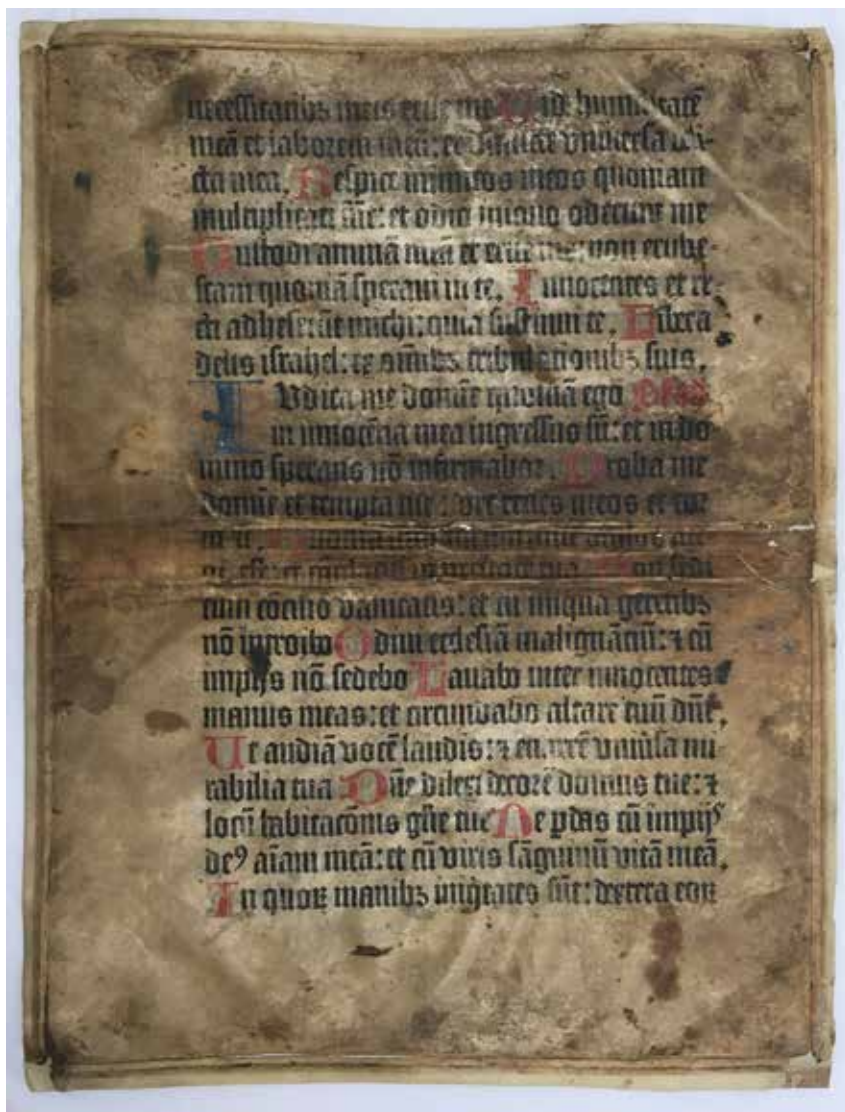 necessitatibꝫ meis erue me Vide humilitatē
meā et laborem meū: et dimitte vniuersa deli-
cta mea. Respice inimicos meos quoniam
multiplicati sūt: et odio iniquo oderunt me
Custodi animā meā et erue me: non erube-
scam quoniā speraui in te. Innocentes et re-
cti adheserūt michi: quia sustinui te. Libera
deus israhel: ex omībꝫ tribulationibꝫ suis.
IVdica me domīe quoniā ego
in innocētia mea ingressus sū: et in do
mino sperans nō infirmabor. Proba me
domīe et tempta me: vre renes meos et cor
meū. Quoniam
Non sedi
cum cōcilio vanitatis: et cū iniqua gerētibꝫ
nō introibo Odiui ecclesiā malignātiū: ⁊ cū
impijs nō sedebo Lauabo inter innocentes
manus meas: et circumdabo altare tuū dn̄e.
Ut audiā vocē laudis: ⁊ enarrē vniūsa mi
rabilia tua Dn̄e dilexi decorē domus tue: ⁊
locū habitacōnis glīe tue Ne pdas cū impijs
deꝰ aīam meā: et cū viris sāguinū vitā meā.
In quoꝝ manibꝫ iniqͥtates sūt: dextera eoꝝ